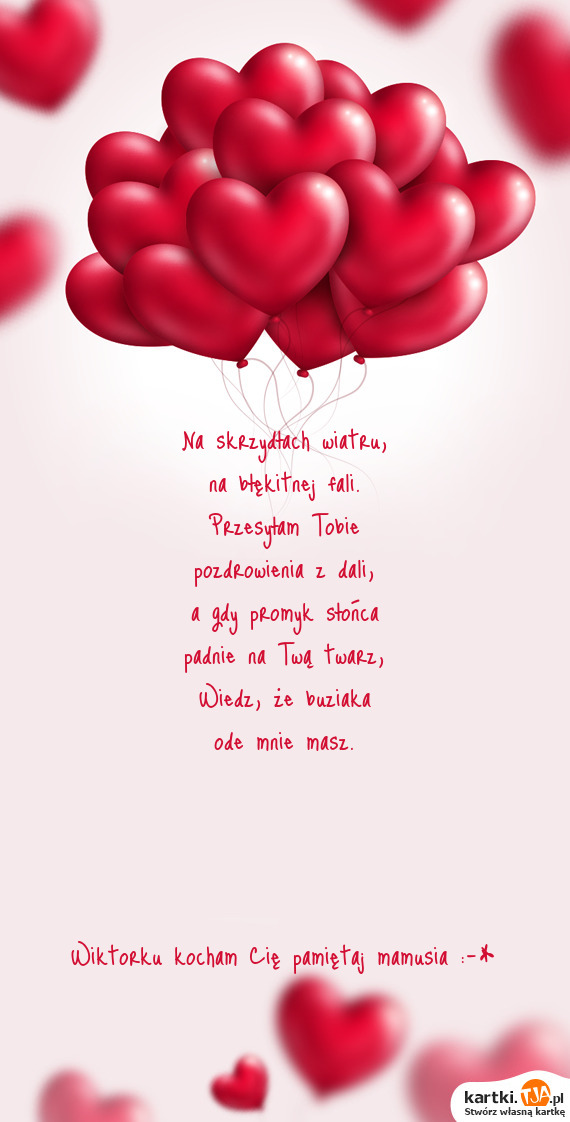 Na skrzydłach wiatru,
na błękitnej fali.
Przesyłam Tobie
pozdrowienia z dali,
a gdy promyk słońca
padnie na Twą twarz,
Wiedz, że buziaka
ode mnie masz.
Wiktorku kocham Cię pamiętaj mamusia :-*
kartki.TJA.pl
Stwórz własną kartkę